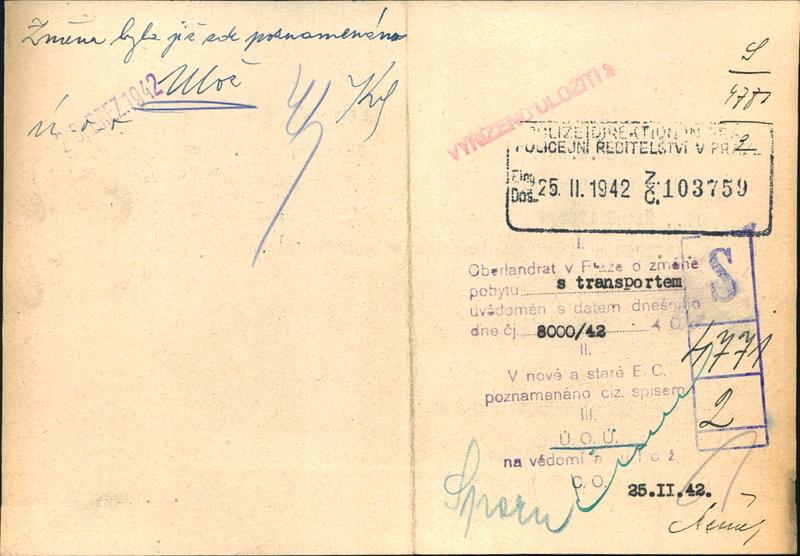 Změna byla již zde poznamenána
Ulož
VYŘÍZENO ULOŽITI
S
POLIZEIDIREKTION IN
POLICEJNÍ ŘEDITELSTVÍ V PR
2
Eing.
Doš. 25. II. 1942 Č. 103759
I.
Oberlandrat v Praze o změně
pobytu s transportem
uvědoměn s datem dnešního
dne čj. 8000/42
II.
V nové a staré E. C.
poznamenáno ciz. spisem
III.
Ú. O. Ú.
na vědomí a
C. O.
25.II.42.
S
4771
2